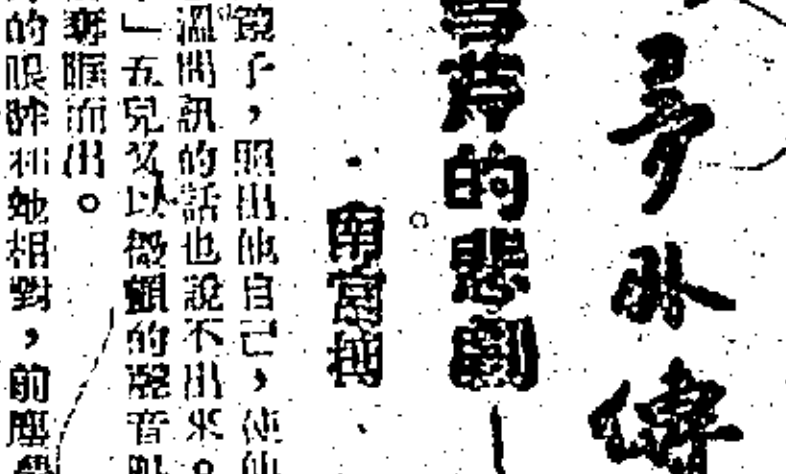 夢外傳
雪芹的悲劇—
南宮搏
鏡子，照出他自己，使他
溫問訊的話也說不出來。
」五兒又以微顫的聲音
奪眶而出。
的眼眸和她相對，前塵